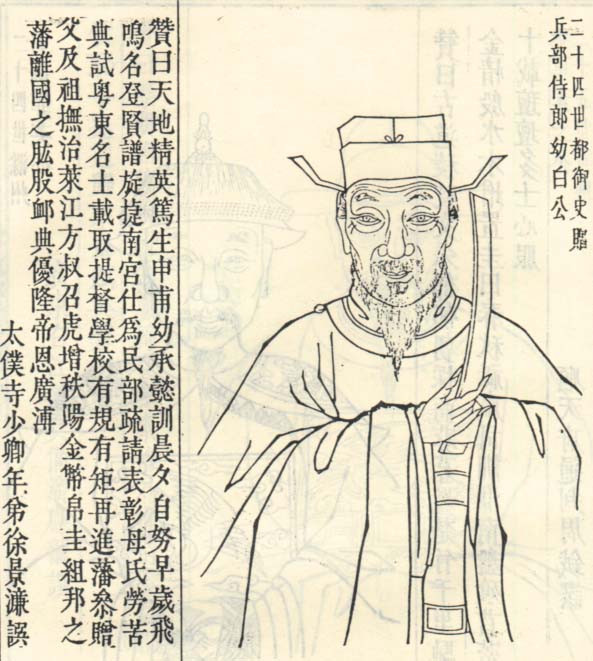 二十四世都御史贈
兵部侍郎幼白公
贊曰天地精英篤生申甫幼承懿訓晨夕自努早歲飛
鳴名登賢譜旋捷南宮仕爲民部疏請表彰母氏勞苦
典試粵東名士載取提督學校有規有矩再進藩叅贈
父及祖撫治萊江方叔召虎增秩賜金幣帛圭組邦之
藩離國之肱股卹典優隆帝恩廣溥
太僕寺少卿年弟徐景濂譔